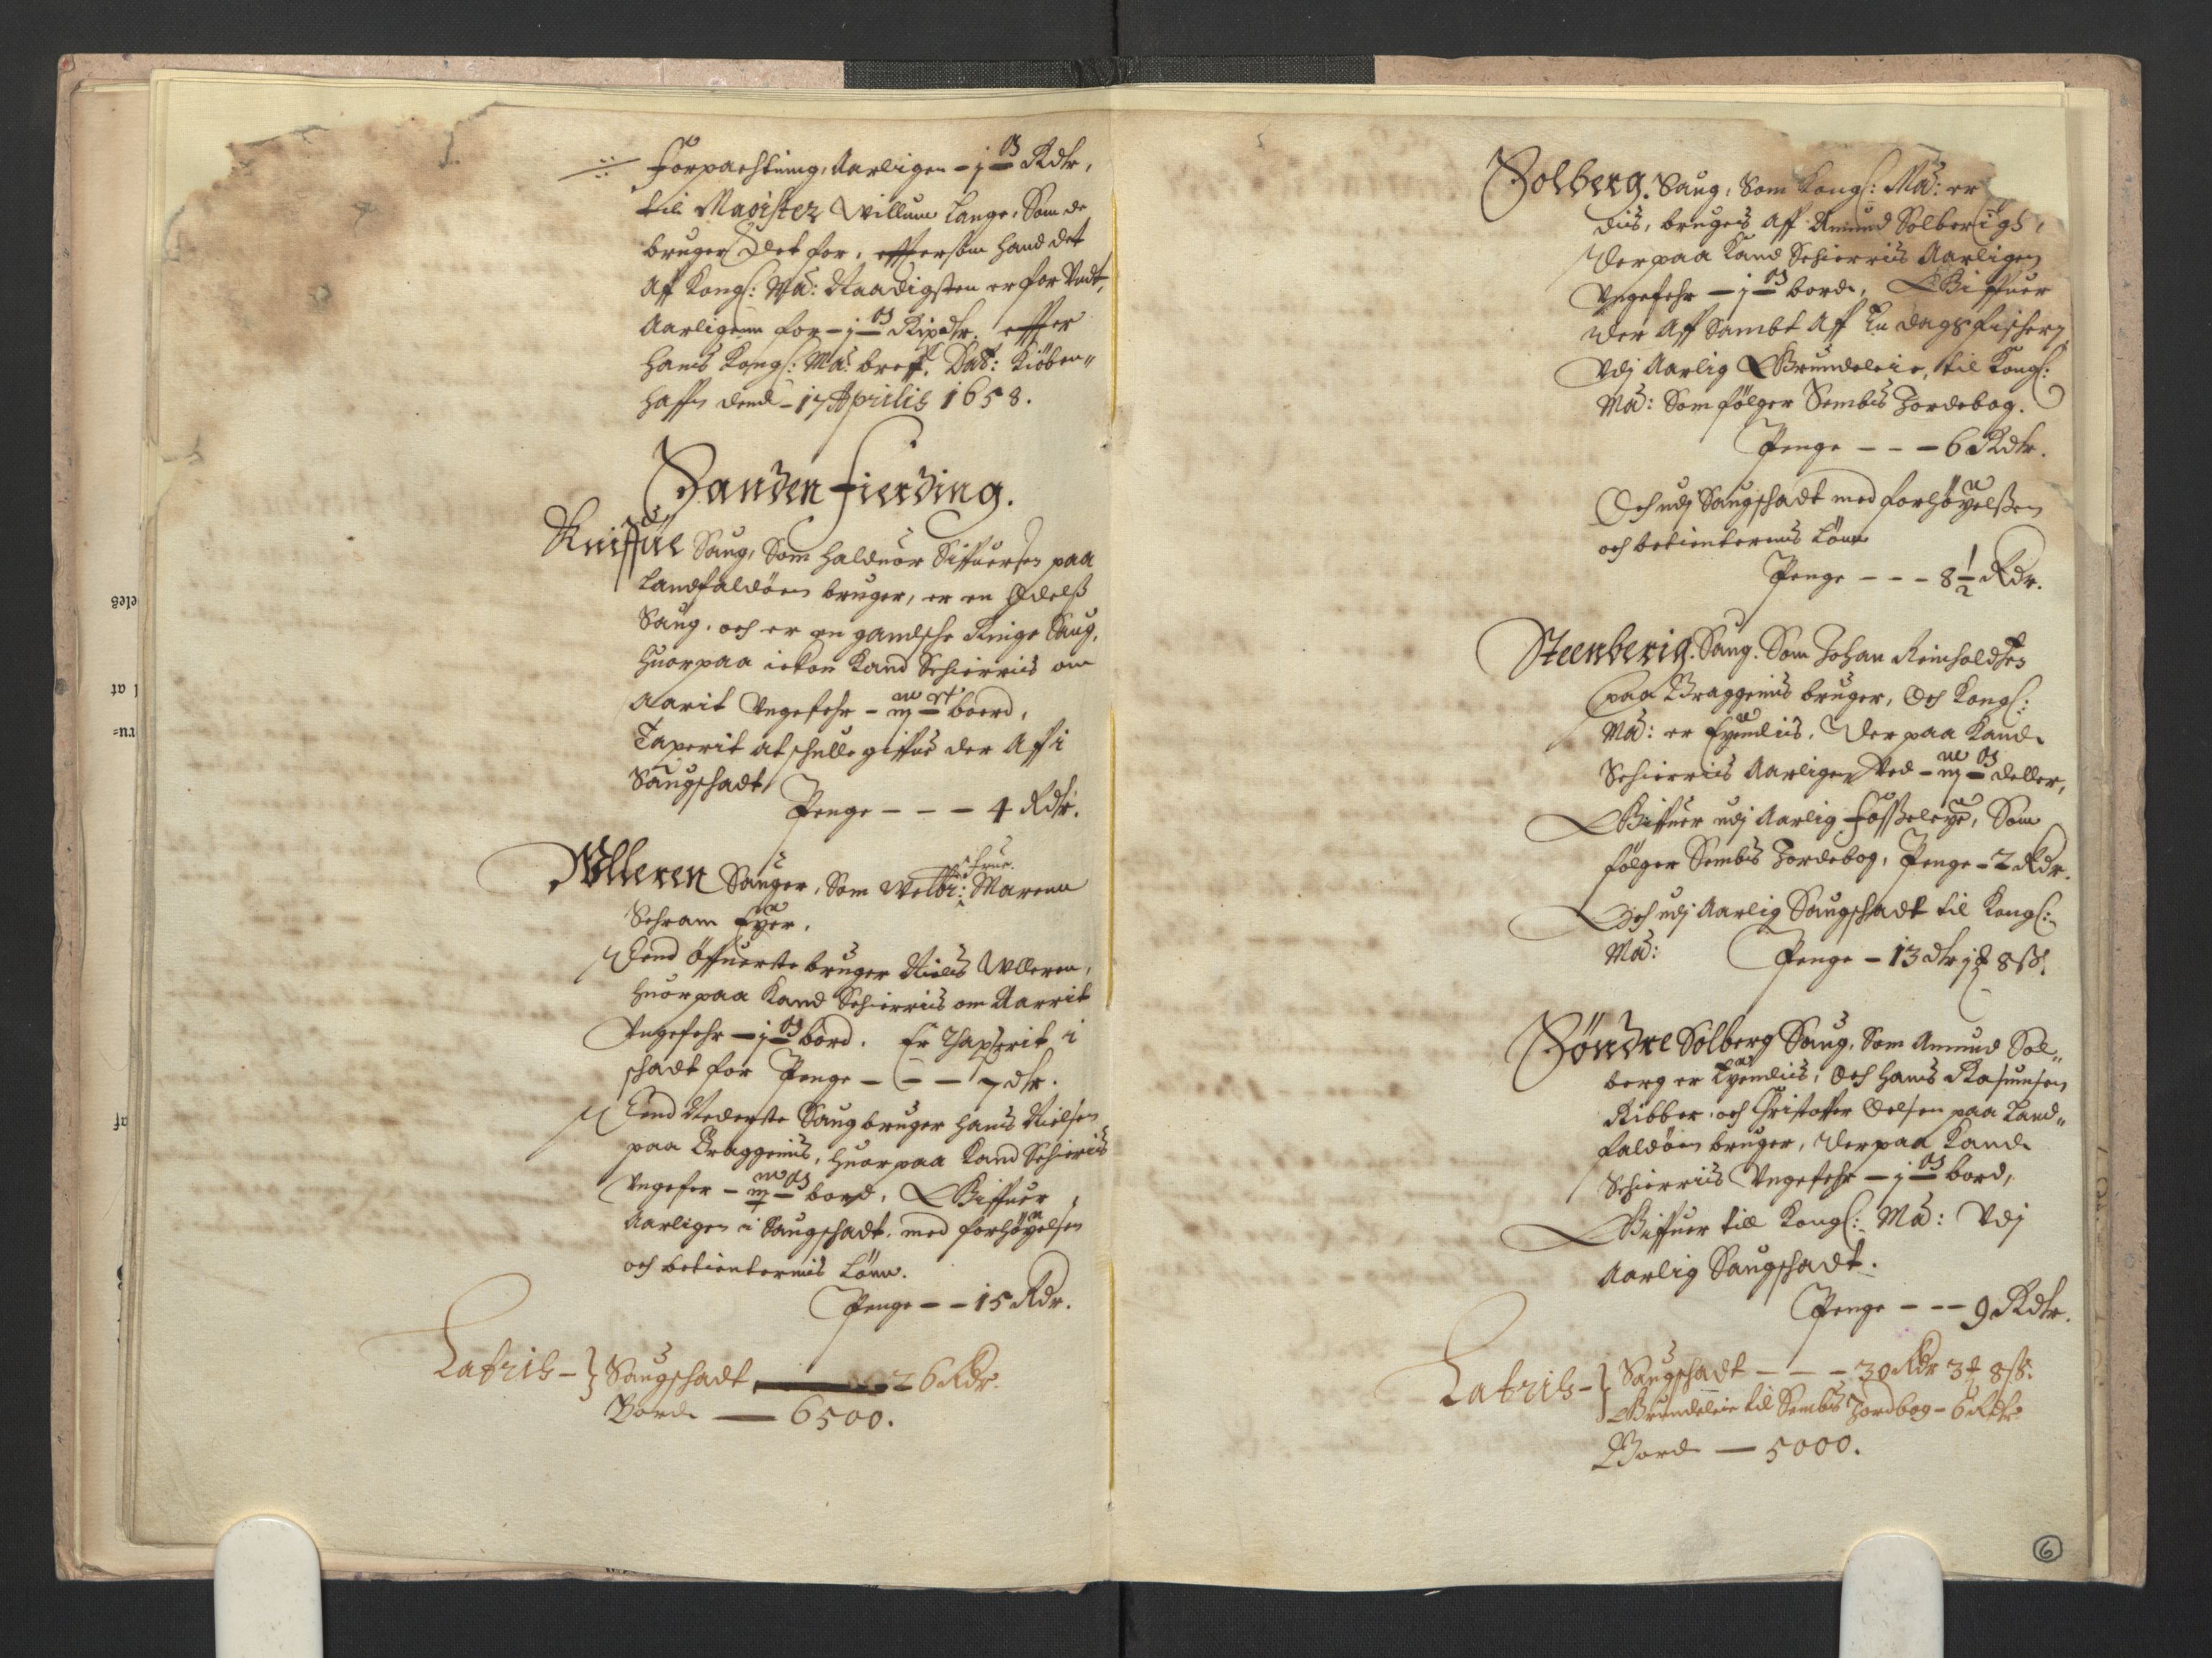 Forpachtning, Aarligen – j M Rdlr,
til Magister Willum Lange, Som de
bruger Det for, effterson hand det
Aff Kongl: Ma: Naadigsten er for Undt,
Aarligenn for – j M Rixdlr, effter
hans Kongl: Ma: breff, Dat: Kiöben"
haffn dend – 17 Aprilis 1658.
Sanden Fierding.
Saug, Som Halduor Siffuersen paa
Landfaldöen bruger, er en Odelss
Saug, och er en gandsche Ringe Saug,
huorpaa icken Kand Schierris om
Aarit Ungefehr – boerd,
Taxerit at schulle giffue der Aff i
Saugschadt
Penge – – – 4 Rdlr.
Ulleren Sauger, Som Welbr: frue Maren
Schram Eyer,
Dend Öffuerste bruger Niels Ulleren,
huorpaa Kand Schierris om Aarrit
Ungefehr – j M bord. Er Thaxerit i
schadt for Penge – – – 7 dlr.
Dend Nederste Saug bruger Hans Nielsen
paa Braggenis, huorpaa Kand Schieris
Ungefer – bord, Giffuer
Aarligen i Saugschadt, med forhöyelsen
och betienternis Lönn.
Penge – – 15 Rdr.
Lateris – } Saugschadt 26 Rdr.
Bord — 6500.
Solberg. Saug, Som Kongl: Ma: er
diis, bruges Aff Amund Solberigs,
Der paa Kand Schierris Aarligen
Ungefehr – j M bord, Giffuer
der Aff Sambt Aff En dags fischery
Udj Aarlig Grundeleie, til Kongl:
Ma: Som fölger Sembs Jordebog.
Penge – – – 6 Rdlr.
Och udj Saugschadt med forhöyelssen
och betienternis Lönn
Penge – – – 8 1/2 Rdr.
Steenberig. Saug. Som Johan Reinholdsen
paa Braggenis bruger, Och Kongl:
Ma: er Eyendis, Der paa Kand
Schierris Aarligen Ved – deller,
Giffuer udj Aarlig Fosseleye, Som
fölger Sembs Jordebog, Penge – 2 Rdr.
Och udj Aarlig Saugschadt til Kongl:
Ma: Penge – 13 dlr j 8 ss.
Söndre Solberg Saug, Som Amund Sol"
berg er Eyendis, Och Hans Rasmusen
Ribber, och Christoffer Oelsen paa Land"
faldöen bruger, Der paa Kand
Schierris Ungefehr – j M bord,
Giffuer till Kongl: Ma: Udj
Aarlig Saugschadt.
Penge – – – 9 Rdlr.
Lateris – } Saugschadt – – – 30 Rdr 3 8 ss.
Grundeleie til Sembs Jordbog – 6 Rdlr
Bord — 5000.
6